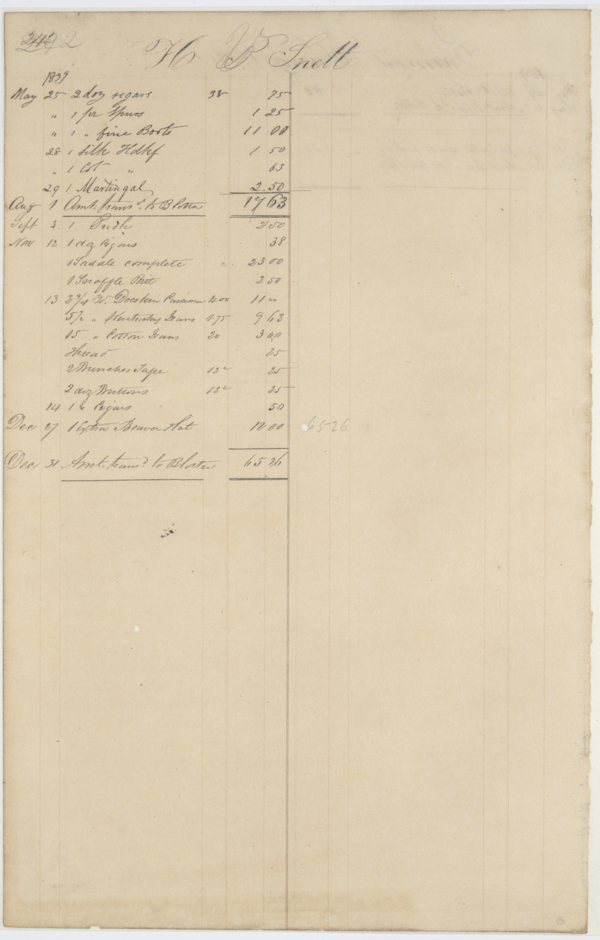 242
H P Snell
1839
May 25 2 doz segars 38 75
" 1 pr Spurs 1 25
" 1 " fine Boots 11 00
28 1 Silk Hdkf 1 50
" 1 Cot " 63
29 1 Martingal 2.50
Aug 1 Amt. trans.d to Blotter 1763
Sept 3 1 Bridle 250
Nov 12 1 doz Cigars 38
1 Saddle complete " 2300
1 Bitt 250
13 2 3/4 Yd. 400 11 "
5 1/2 " Kentucky Jeans 175 963
15 " Cotton Jeans 20 300
Thread 25
2 Bunches Tape 12 1/2 25
2 doz Buttons 12 1/2 25
14 16 Cigars 50
Dec 27 1 Extra Beaver Hat 1200 6526
Dec 31 Amt. trans.d to Blotter 6526